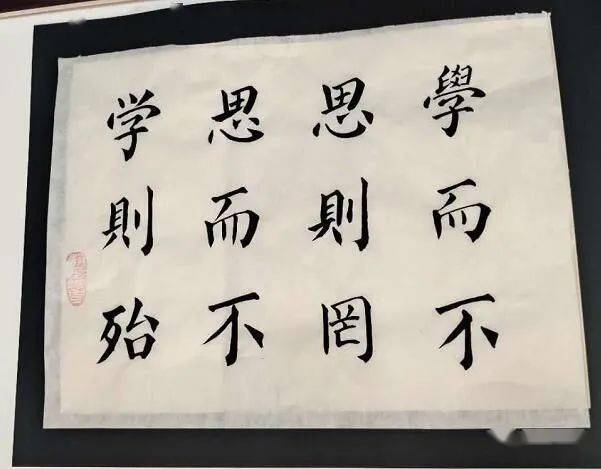 學而不
思則罔
思而不
学則殆